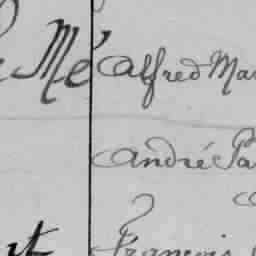 Mé Alfred Mar
André Pa
François